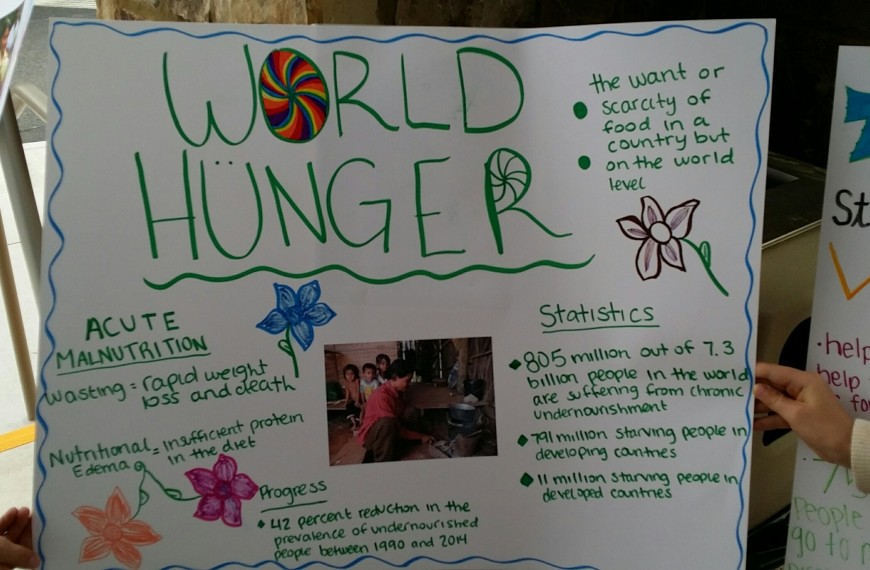 WORLD
HÜNGER
the want or
scarcity of
food in a
country but
on the world
level
ACUTE
MALNUTRITION
Wasting = rapid weight
loss and death
Nutritional = insufficient protein
Edema in the diet
Progress
42 percent reduction in the
prevalence of undernourished
people between 1990 and 2014
Statistics
805 million out of 7.3
billion people in the world
are suffering from chronic
undernourishment
791 million starving people in
developing countries
11 million starving people in
developed countries
St
· help
help
fo
people
go to